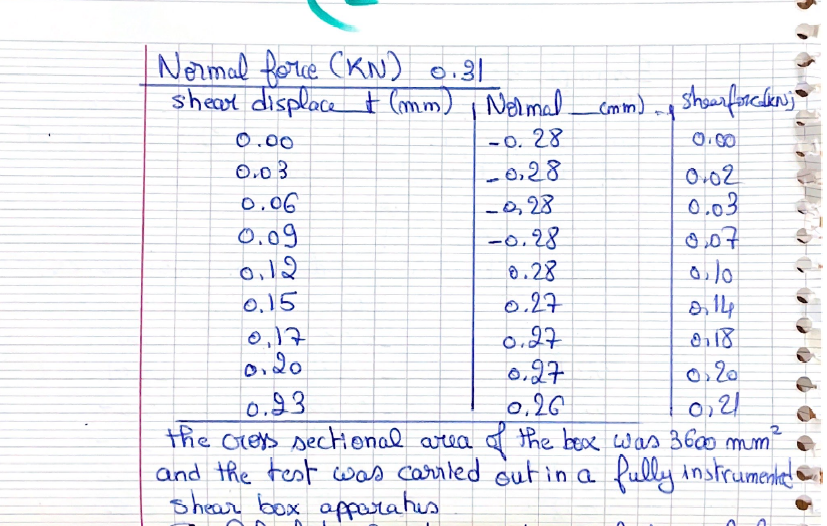 Normal force (KN) 0.31
shear displace t (mm) Normal (mm) shear force (KN)
0.00 -0.28 0.00
0.03 -0,28 0.02
0.06 -0,28 0.03
0.09 -0.28 0,07
0,12 0.28 0,10
0.15 0.27 0,14
0,17 0.27 0,18
0,20 0.27 0,20
0.23 0.26 0,21
the cross sectional area of the box was 3600 mm²
and the test was carried out in a fully instrumented
shear box apparatus